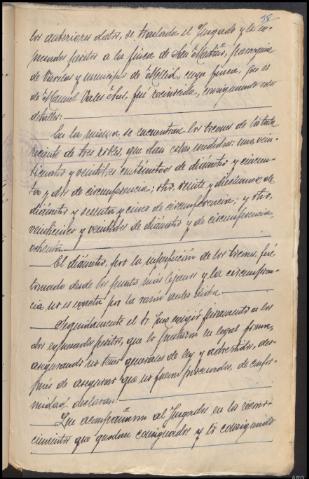 los anteriores datos, se trasladó el Juzgado y
peritos a la finca de San Martín, parroquia
de y municipio de Mellid, cuya finca, que es
de Manuel fué reconocida,
detalles:
En la misma, se encuentran los troncos de la tala
reciente de tres robles, que dan estas medidas: uno
y veintidós centímetros de diámetro y cincuen-
ta y dos de circunferencia; otro, veinte y diecinueve de
diámetro y sesenta y cinco de circunferencia; y otro,
veintiuno y veintidós de diámetro y de circunferencia,
ochenta.
El diámetro, por la imperfección de los troncos, fué
tomado desde los puntos más lejanos y la circunferen-
cia no es exacta por la razón antes dicha.
Seguidamente el Sr. Juez exigió juramento a los
dos expresados peritos, que lo prestaron en legal forma,
asegurando no tener generales de ley y advertidos, des-
pués de asegurar que no fueron procesados, de confor-
midad declaran:
Que acompañaron al Juzgado en los recono-
cimientos que quedan consignados y